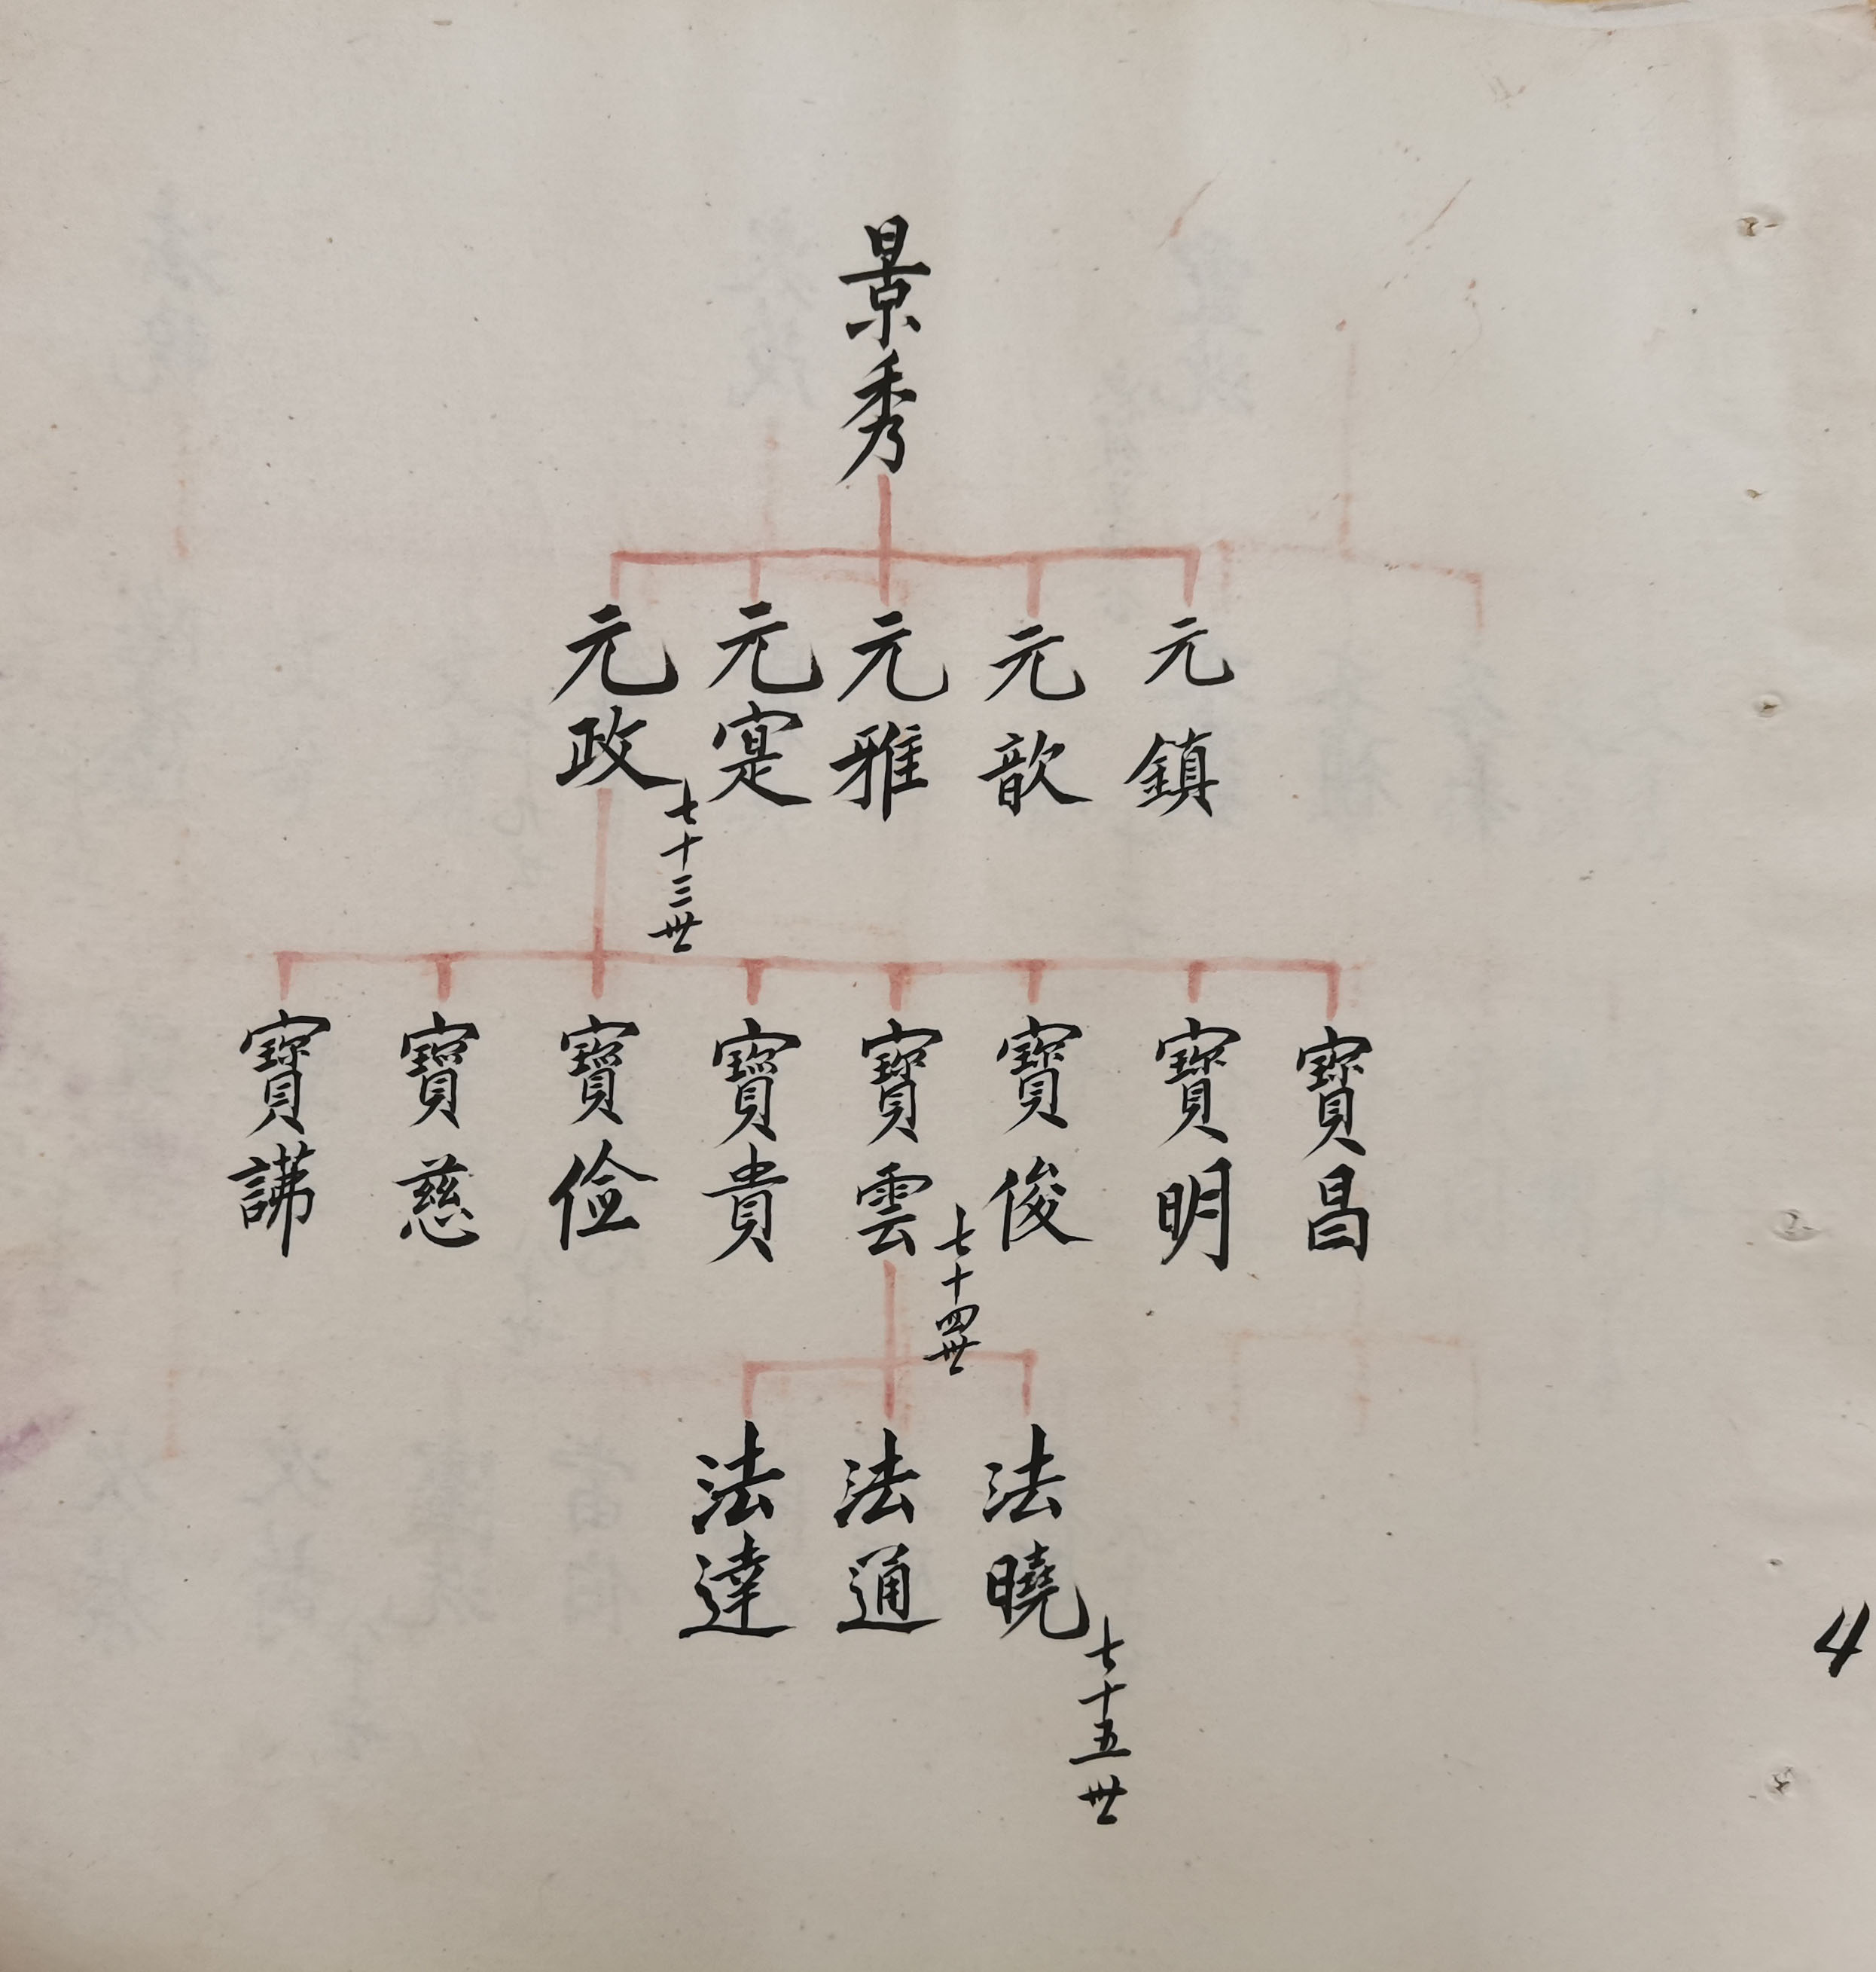 景秀
元鎮
元歆
元雅
元寔
元政
七十三世
寶昌
寶明
寶俊
寶雲
七十四世
寶貴
寶儉
寶慈
法曉
七十五世
法通
法達
4